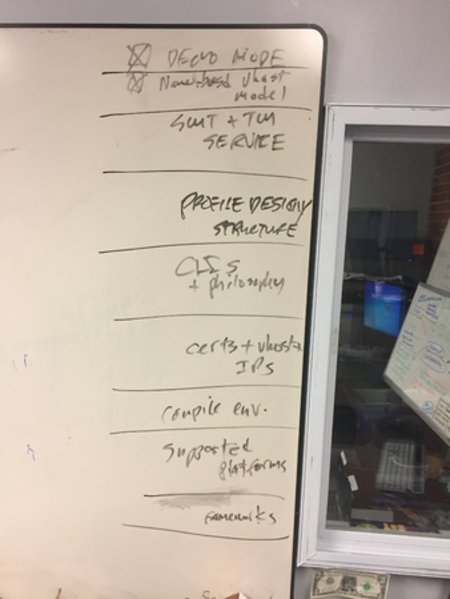 DEMO MODE
Name-based vhost
model
SMT + TM
SERVICE
PROFILE DESIGN/
STRUCTURE
CLIs
+ philosophy
certs + vhosts
IPs
compile env.
supported
platforms
frameworks